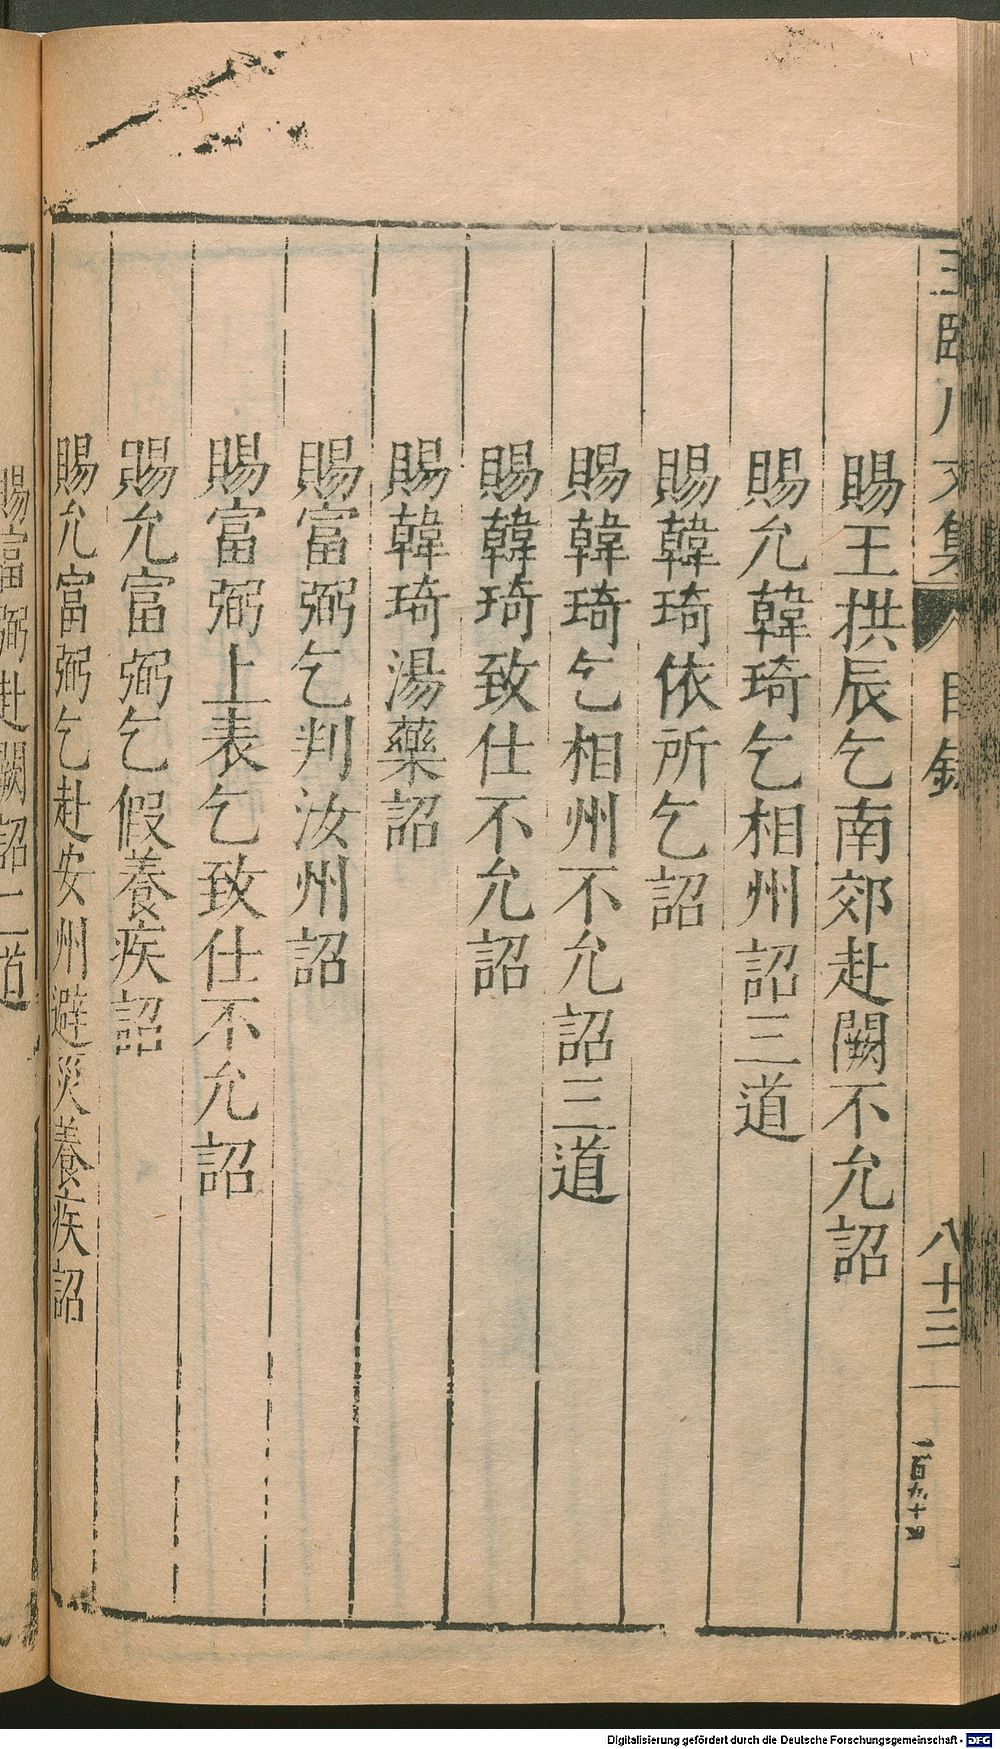 王臨川文集 目錄 八十三
一百九十四
賜王拱辰乞南郊赴闕不允詔
賜允韓琦乞相州詔三道
賜韓琦依所乞詔
賜韓琦乞相州不允詔三道
賜韓琦致仕不允詔
賜韓琦湯藥詔
賜富弼乞判汝州詔
賜富弼上表乞致仕不允詔
賜允富弼乞假養疾詔
賜允富弼乞赴安州避災養疾詔
賜富弼赴闕詔二道
Digitalisierung gefördert durch die Deutsche Forschungsgemeinschaft - DFG